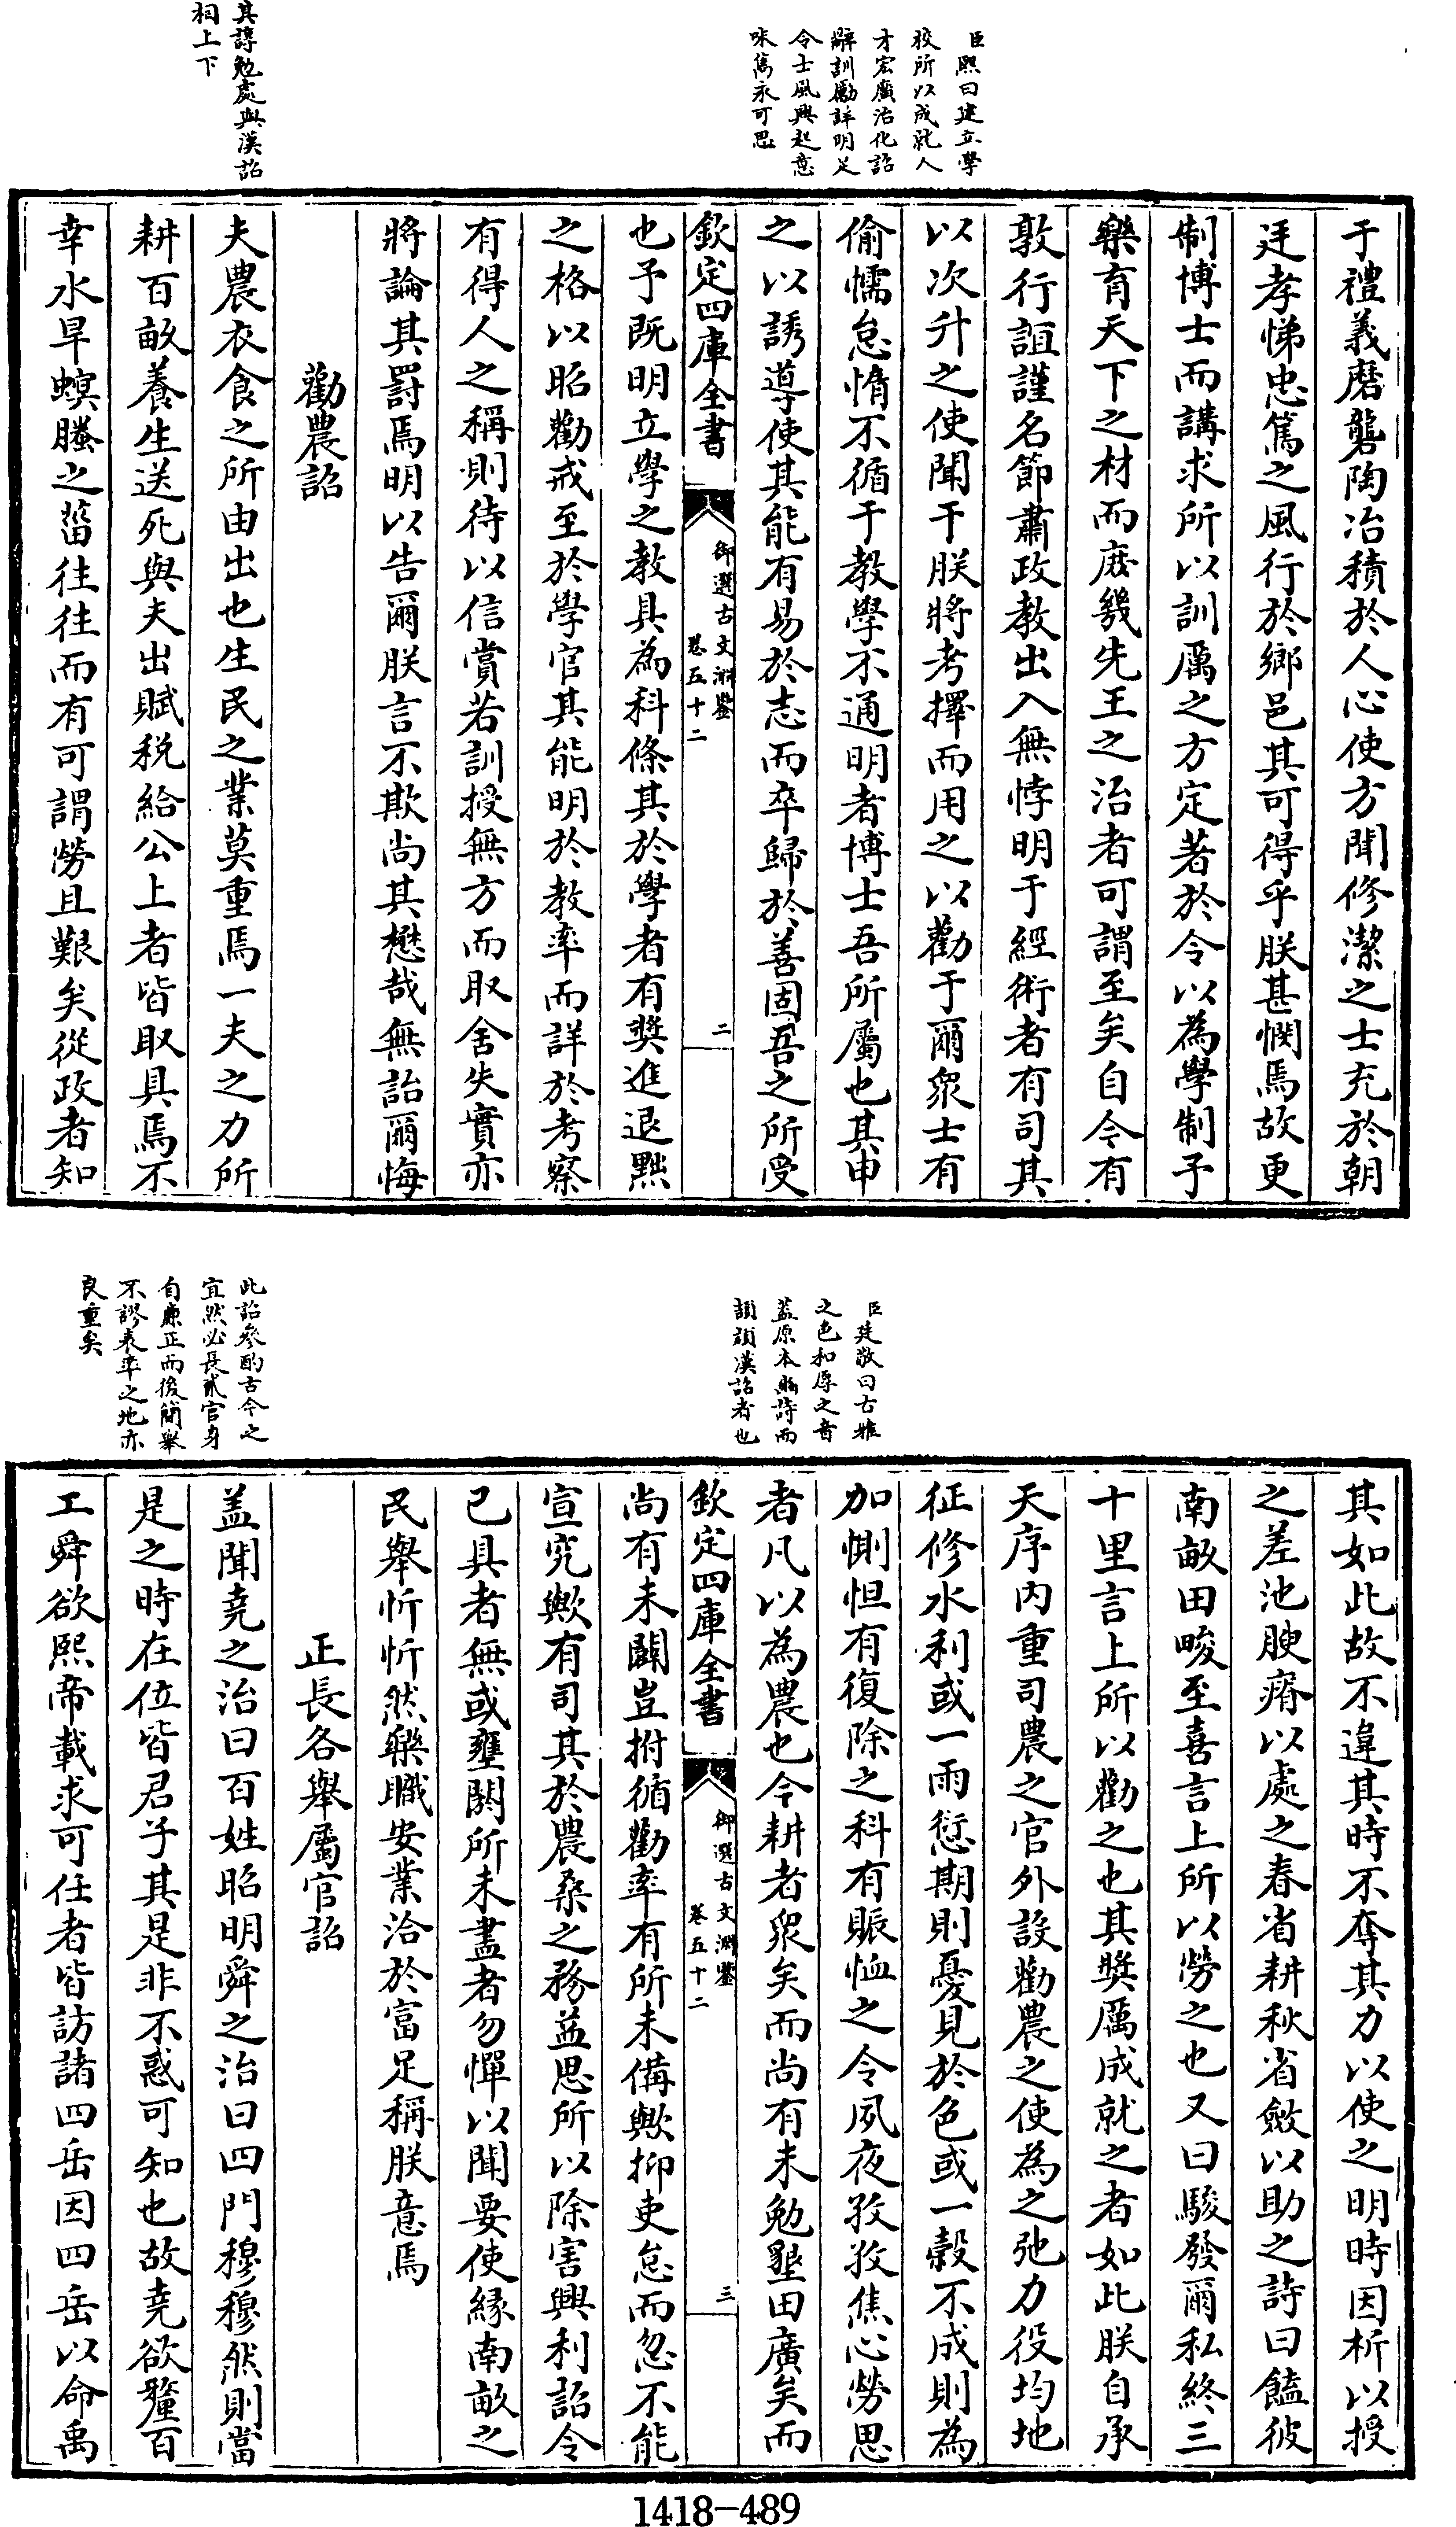 臣熙曰建立學
校所以成就人
才宏廣治化詔
辭訓勵詳明足
令士風興起意
味雋永可思
其諄勉處與漢詔
相上下
于禮義磨礱陶冶積於人心使方聞修潔之士充於朝
廷孝悌忠篤之風行於鄉邑其可得乎朕甚憫焉故更
制博士而講求所以訓厲之方定著於令以為學制予
樂育天下之材而庶幾先王之治者可謂至矣自今有
敦行誼謹名節肅政教出入無悖明于經術者有司其
以次升之使聞于朕將考擇而用之以勸于爾眾士有
偷懦怠惰不循于教學不通明者博士吾所屬也其申
之以誘導使其能有易於志而卒歸於善固吾之所受
欽定四庫全書
御選古文淵鑒
卷五十二
二
也予既明立學之教具為科條其於學者有獎進退黜
之格以昭勸戒至於學官其能明於教率而詳於考察
有得人之稱則待以信賞若訓授無方而取舍失實亦
將論其罰焉明以告爾朕言不欺尚其懋哉無詒爾悔
勸農詔
夫農衣食之所由出也生民之業莫重焉一夫之力所
耕百畝養生送死與夫出賦税給公上者皆取具焉不
幸水旱螟螣之菑往往而有可謂勞且艱矣從政者知
臣廷敬曰古雅
之色和厚之音
葢原本豳詩而
頡頏漢詔者也
此詔參酌古今之
宜然必長貳官身
自廉正而後簡舉
不謬表率之地亦
良重矣
其如此故不違其時不奪其力以使之明時因析以授
之差池腴瘠以處之春省耕秋省斂以助之詩曰饁彼
南畝田畯至喜言上所以勞之也又曰駿發爾私終三
十里言上所以勸之也其獎厲成就之者如此朕自承
天序内重司農之官外設勸農之使為之弛力役均地
征修水利或一雨愆期則憂見於色或一穀不成則為
加惻怛有復除之科有賑恤之令夙夜孜孜焦心勞思
者凡以為農也今耕者眾矣而尚有未勉墾田廣矣而
欽定四庫全書
御選古文淵鑒
卷五十二
三
尚有未闢豈拊循勸率有所未備歟抑吏怠而忽不能
宣究歟有司其於農桑之務益思所以除害興利詔令
已具者無或壅閼所未盡者勿憚以聞要使緣南畝之
民舉忻忻然樂職安業洽於富足稱朕意焉
正長各舉屬官詔
葢聞堯之治曰百姓昭明舜之治曰四門穆穆然則當
是之時在位皆君子其是非不惑可知也故堯欲釐百
工舜欲熙帝載求可任者皆訪諸四岳因四岳以命禹
1418-489